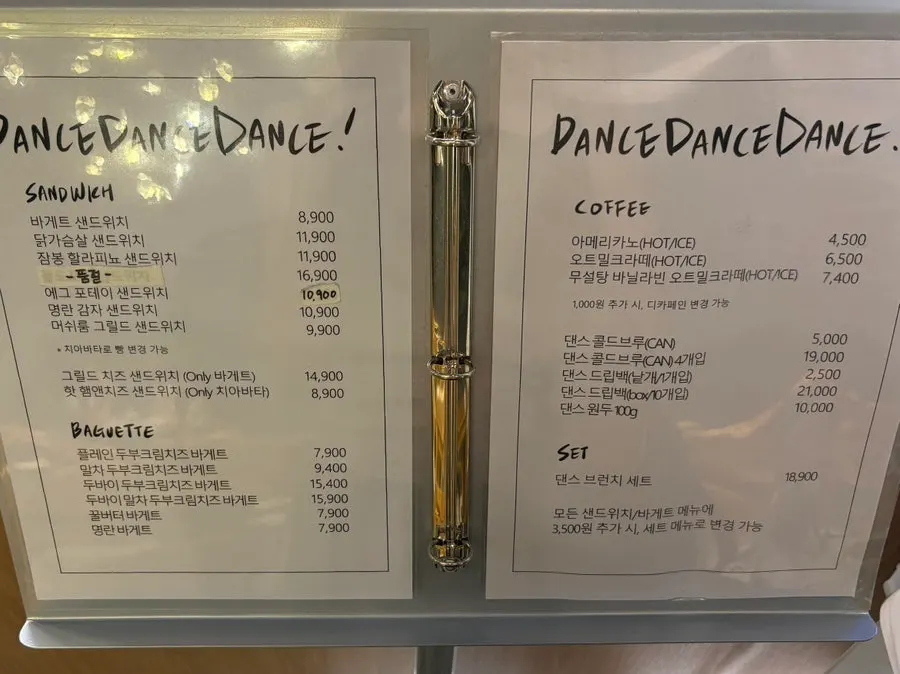 DANCEDANCEDANCE!
SANDWICH
바게트 샌드위치 8,900
닭가슴살 샌드위치 11,900
잠봉 할라피뇨 샌드위치 11,900
-품절- 16,900
에그 포테이 샌드위치 10,900
명란 감자 샌드위치 10,900
머쉬룸 그릴드 샌드위치 9,900
* 치아바타로 빵 변경 가능
그릴드 치즈 샌드위치 (Only 바게트) 14,900
핫 햄앤치즈 샌드위치 (Only 치아바타) 8,900
BAGUETTE
플레인 두부크림치즈 바게트 7,900
말차 두부크림치즈 바게트 9,400
두바이 두부크림치즈 바게트 15,400
두바이 말차 두부크림치즈 바게트 15,900
꿀버터 바게트 7,900
명란 바게트 7,900
DANCEDANCEDANCE.
COFFEE
아메리카노(HOT/ICE) 4,500
오트밀크라떼(HOT/ICE) 6,500
무설탕 바닐라빈 오트밀크라떼(HOT/ICE) 7,400
1,000원 추가 시, 디카페인 변경 가능
댄스 콜드브루(CAN) 5,000
댄스 콜드브루(CAN) 4개입 19,000
댄스 드립백(낱개/1개입) 2,500
댄스 드립백(box/10개입) 21,000
댄스 원두 100g 10,000
SET
댄스 브런치 세트 18,900
모든 샌드위치/바게트 메뉴에
3,500원 추가 시, 세트 메뉴로 변경 가능